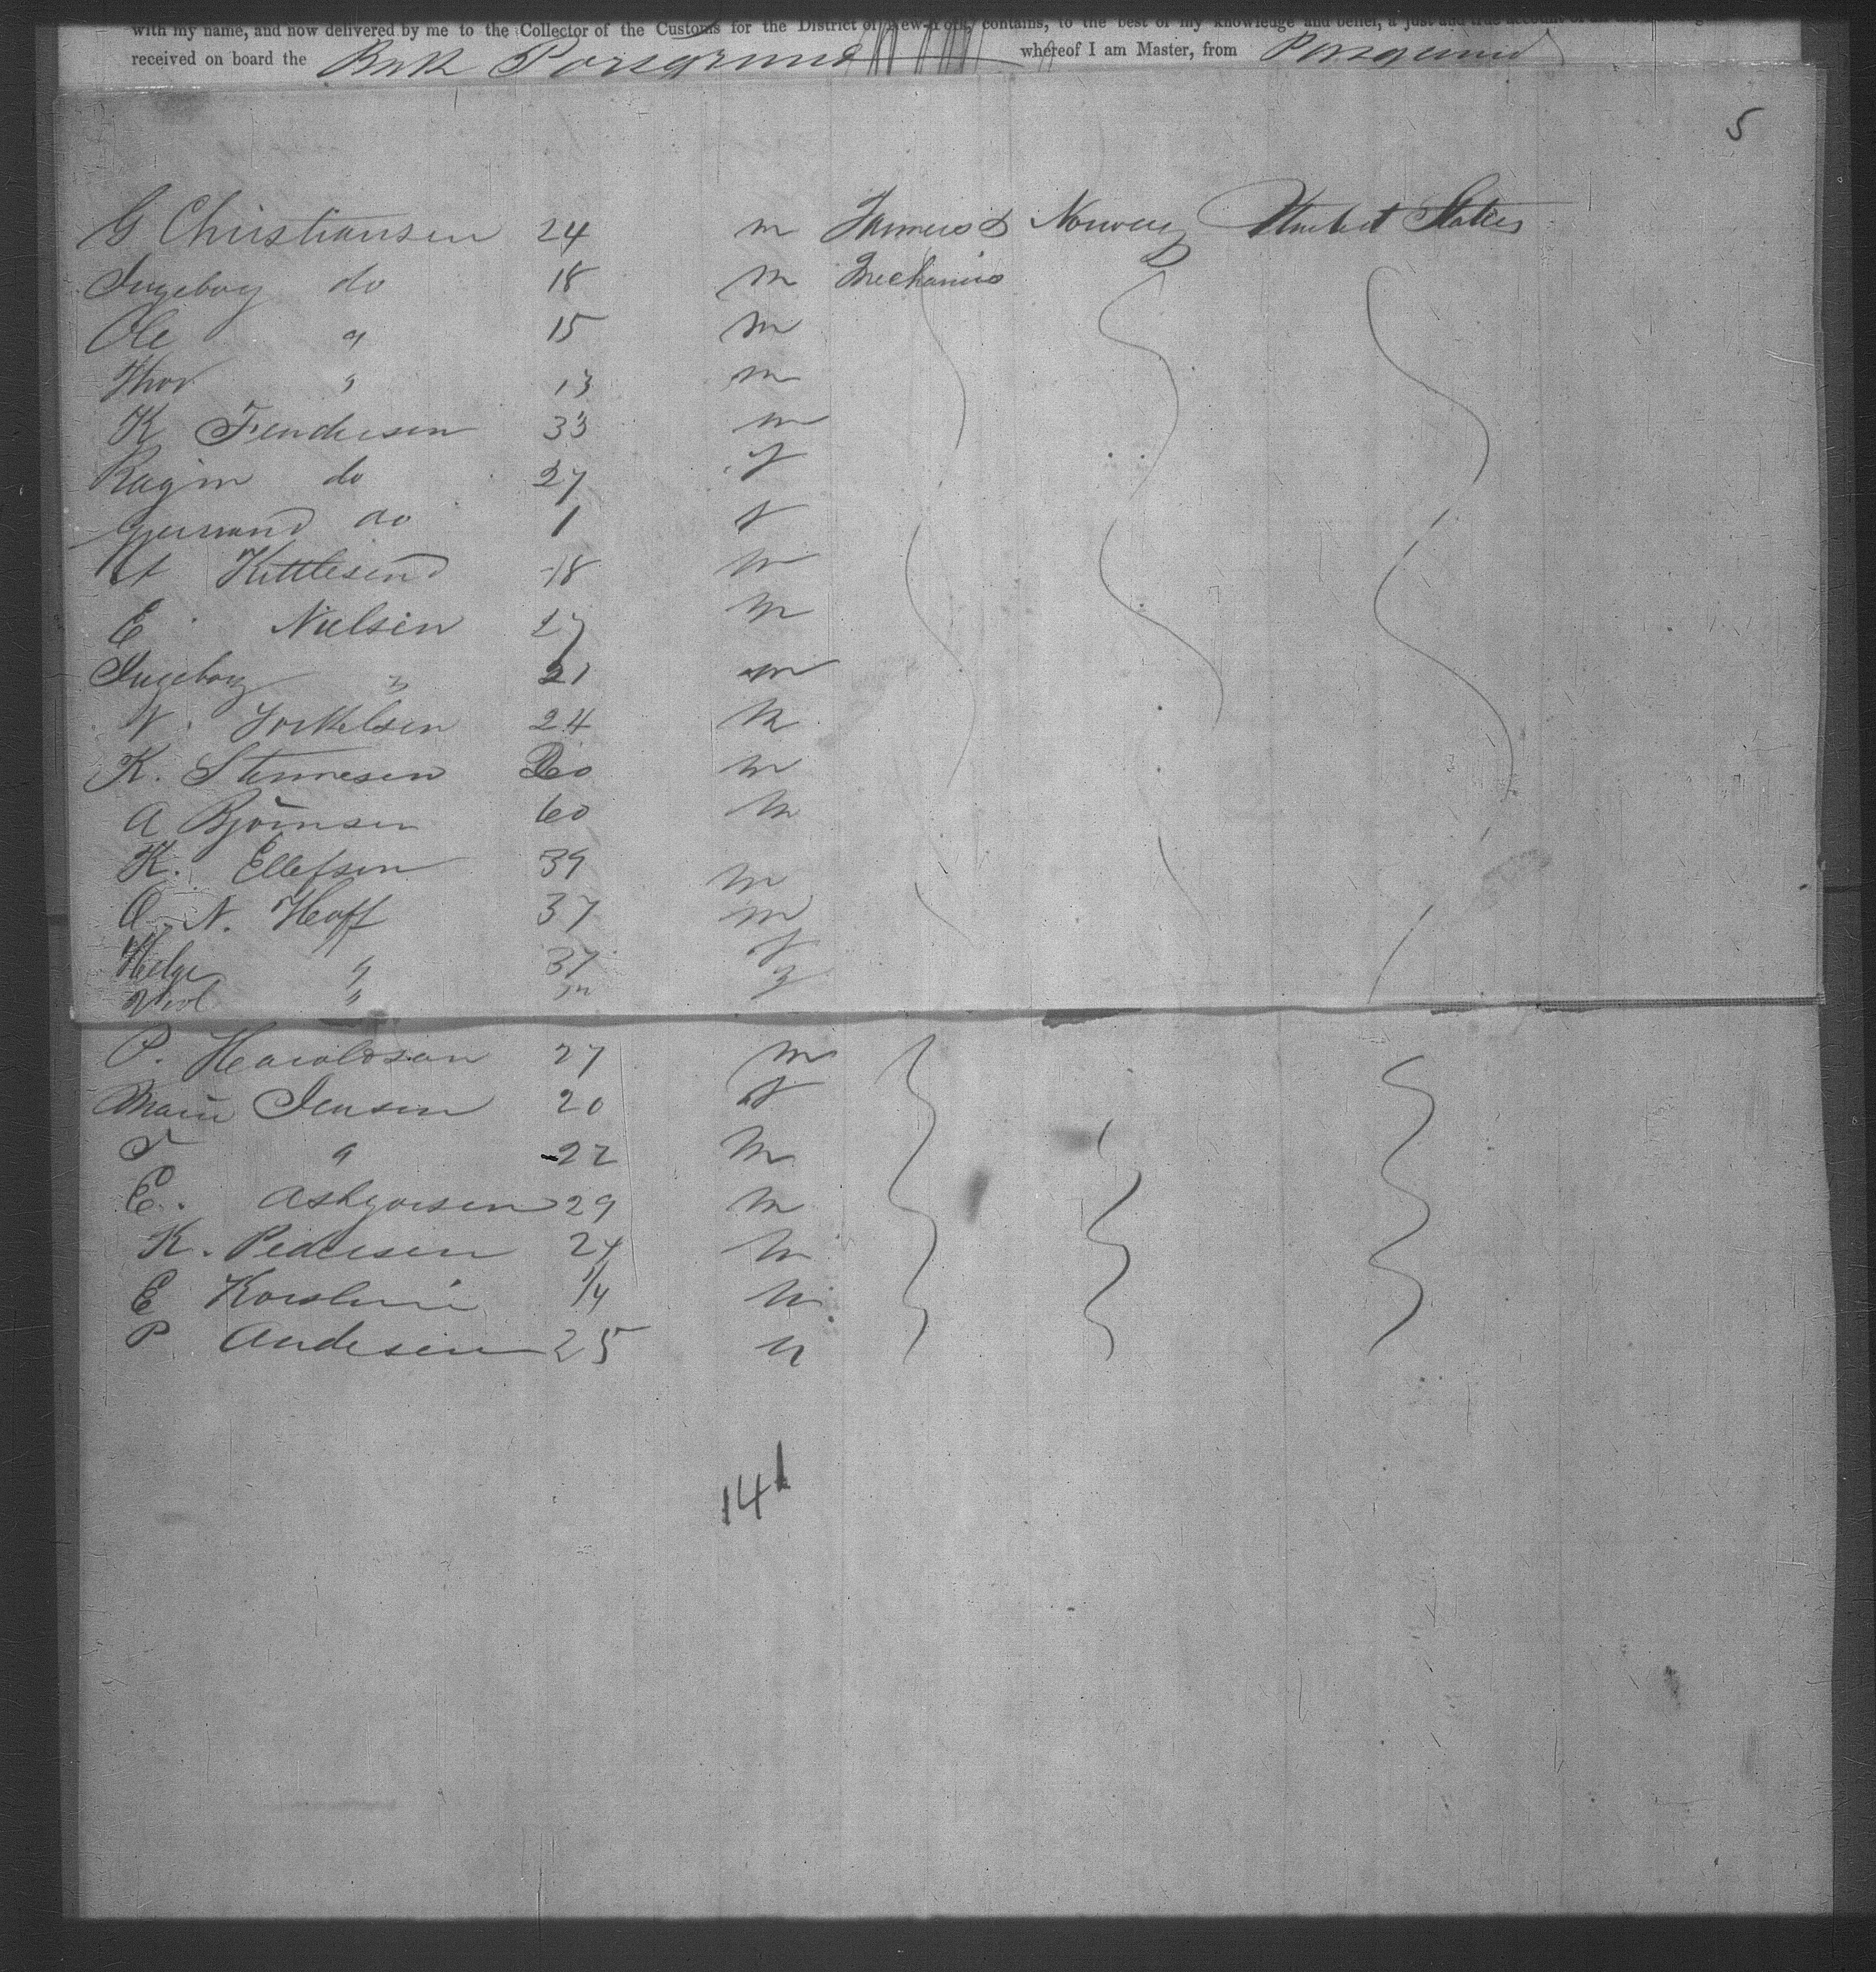 with my name, and now delivered by me to the Collector of the Customs for the District of New-York, contains, to the best of my knowledge and belief, a just and true account of all the
received on board the Bark Porsgrund whereof I am Master, from Porsgrund
5
G Christiansen 24 m Farmers & Norway United States
Ingebory do 18 m Mechanics
Ole " 15 m
Thor " 13 m
K 33 m
Ragin do 27 f
do 1 f
Kittlesen 18 m
E Nielsen 27 m
Ingebory " 21 m
N. Torkelsen 24 m
K. Stennesen m
A Bjornsen 60 m
K. Ellefsen 39 m
O. N. Hoff 37 m
Helge " 37 f
" f
P. Haroldson 27 m
Marie Jensen 20 f
T " 22 m
E. Askgorsen 29 m
K. Pedersen 24 m
E m
P Andesen 25 m
14